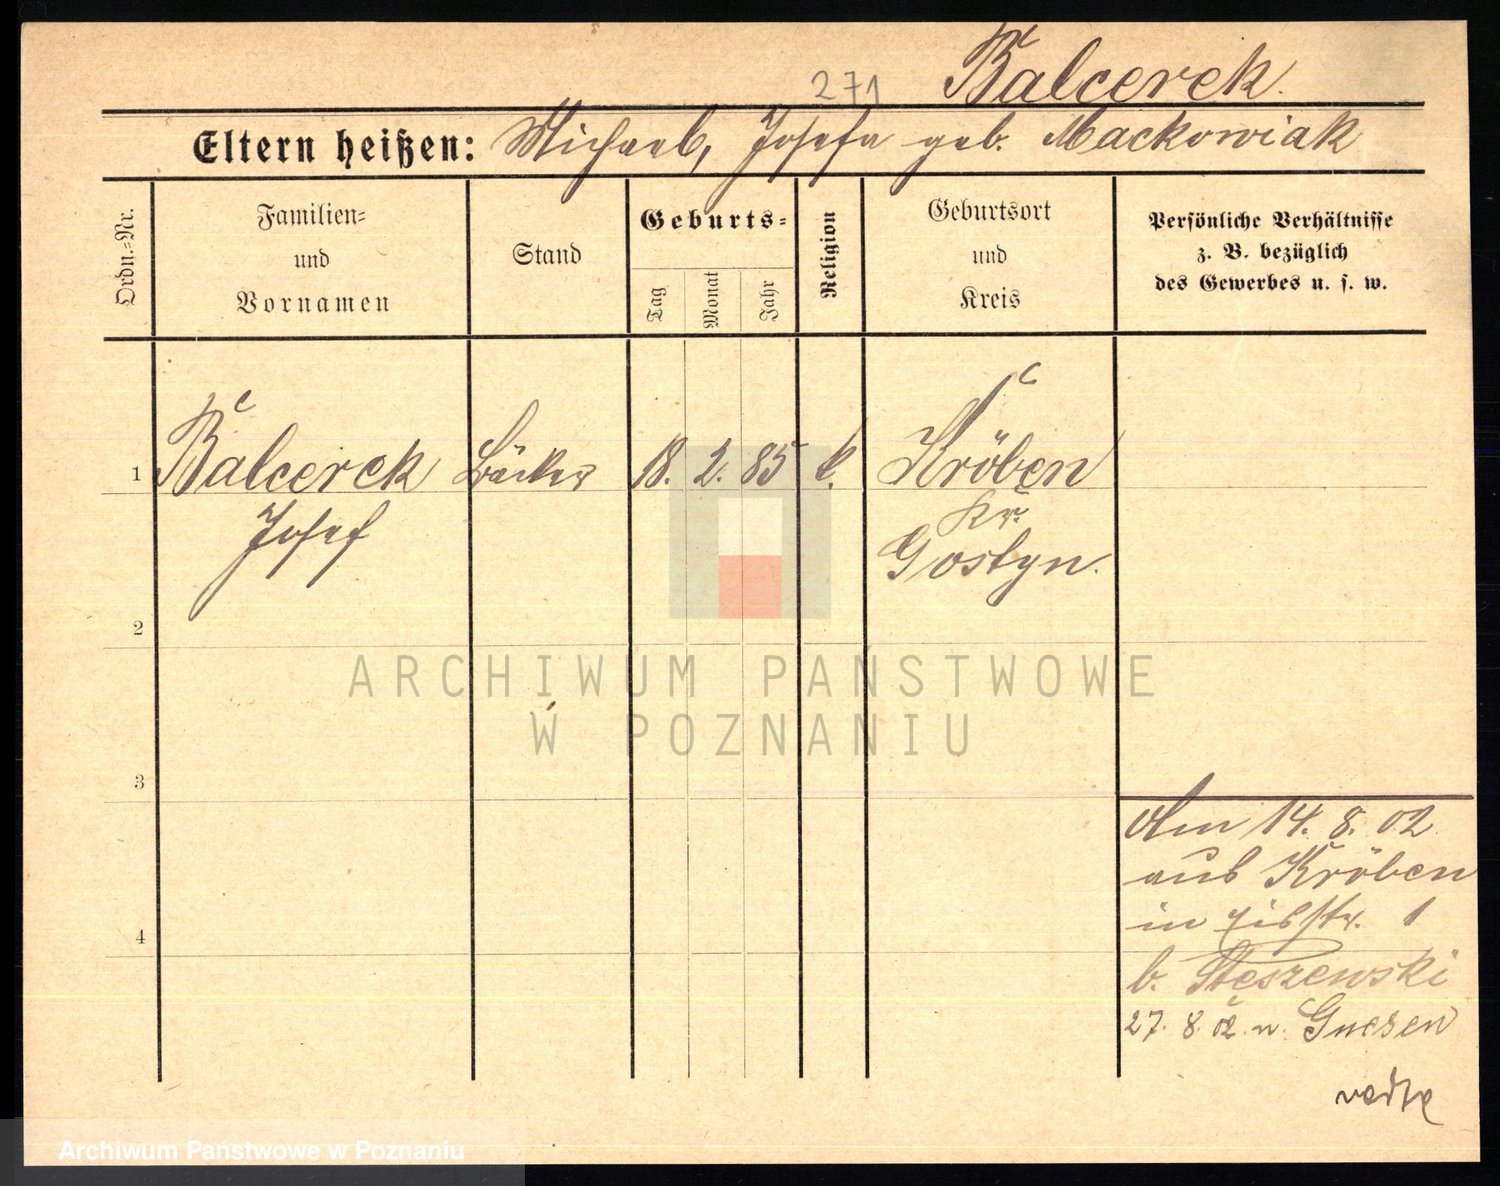 271 Balcerek.
Eltern heißen: Michael, Josefa geb. Mackowiak
Ordn.=Nr.
Familien=
und
Vornamen
Stand
Geburts=
Tag
Monat
Jahr
Religion
Geburtsort
und
Kreis
Persönliche Verhältnisse
z. B. bezüglich
des Gewerbes u. s. w.
1 Balcerek Bäcker 18. 2. 85 k. Kröben
Josef
Kr.
Gostyn.
2
ARCHIWUM PAŃSTWOWE
W POZNANIU
3
Am 14. 8. 02
aus Kröben
in 1
4
b. Stęszewski
27. 8. 02. n. Gnesen
Archiwum Państwowe w Poznaniu